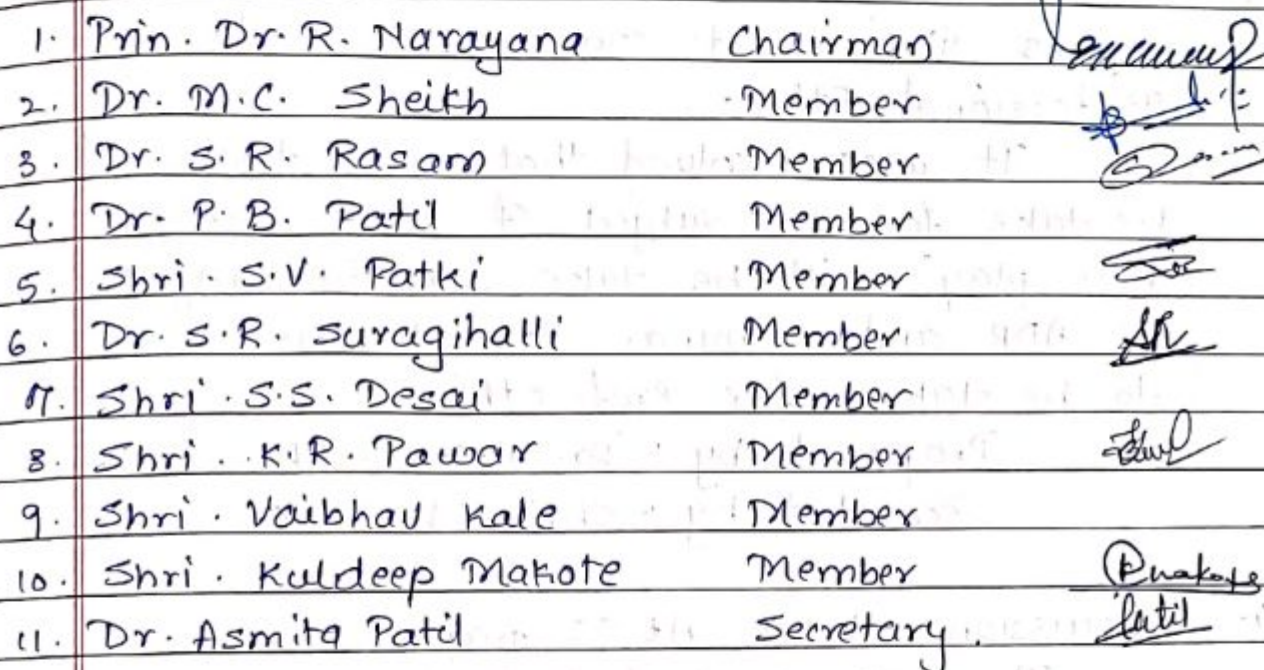 1. Prin. Dr. R. Narayana Chairman
2. Dr. M.C. Sheikh Member
3. Dr. S. R. Rasam Member
4. Dr. P. B. Patil Member
5. Shri S.V. Patki Member
6. Dr. S.R. Suragihalli Member
7. Shri. S.S. Desai Member
8. Shri. K.R. Pawar Member
9. Shri. Vaibhav Kale Member
10. Shri. Kuldeep Makote Member
11. Dr. Asmita Patil Secretary. Patil